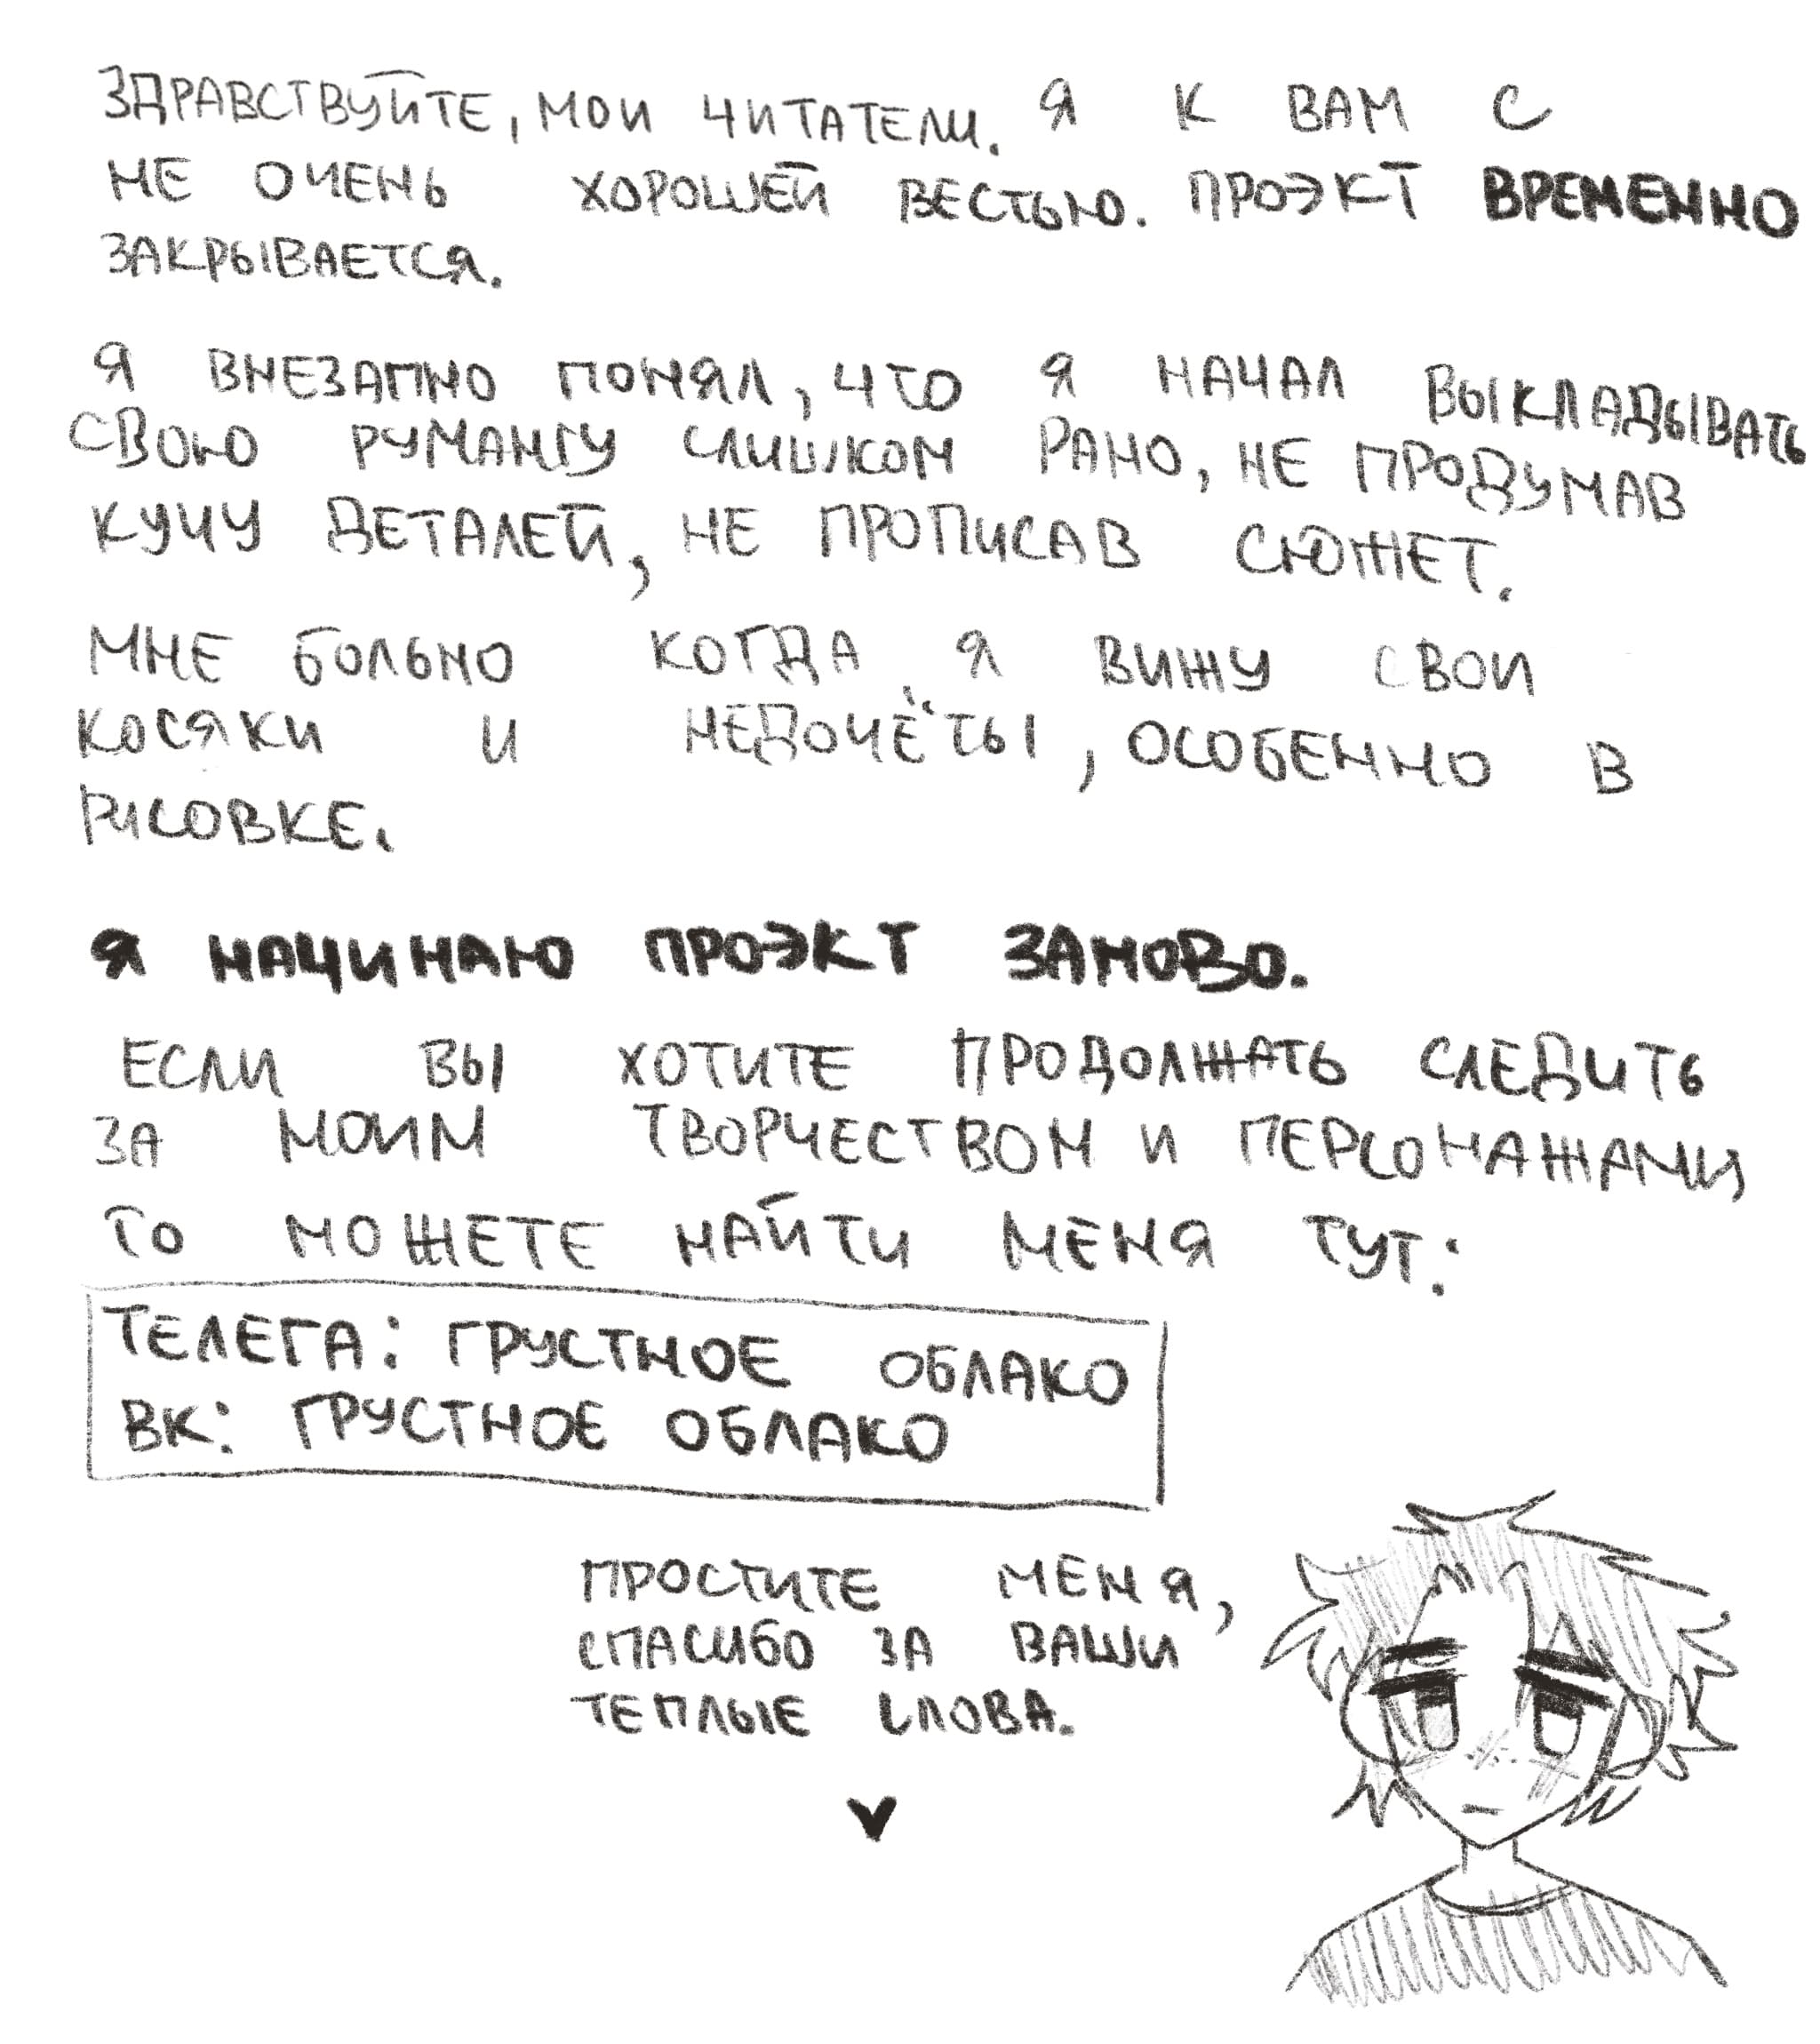 ЗДРАВСТВУЙТЕ, МОИ ЧИТАТЕЛИ. Я К ВАМ С
НЕ ОЧЕНЬ ХОРОШЕЙ ВЕСТЬЮ. ПРОЭКТ ВРЕМЕННО
ЗАКРЫВАЕТСЯ.
Я ВНЕЗАПНО ПОНЯЛ, ЧТО Я НАЧАЛ ВЫКЛАДЫВАТЬ
СВОЮ РУМАНГУ СЛИШКОМ РАНО, НЕ ПРОДУМАВ
КУЧУ ДЕТАЛЕЙ, НЕ ПРОПИСАВ СЮЖЕТ.
МНЕ БОЛЬНО КОГДА Я ВИЖУ СВОИ
КОСЯКИ И НЕДОЧЁТЫ, ОСОБЕННО В
РИСОВКЕ.
Я НАЧИНАЮ ПРОЭКТ ЗАНОВО.
ЕСЛИ ВЫ ХОТИТЕ ПРОДОЛЖАТЬ СЛЕДИТЬ
ЗА МОИМ ТВОРЧЕСТВОМ И ПЕРСОНАЖАМИ
ТО МОЖЕТЕ НАЙТИ МЕНЯ ТУТ:
ТЕЛЕГА: ГРУСТНОЕ ОБЛАКО
ВК: ГРУСТНОЕ ОБЛАКО
ПРОСТИТЕ МЕНЯ,
СПАСИБО ЗА ВАШИ
ТЕПЛЫЕ СЛОВА.